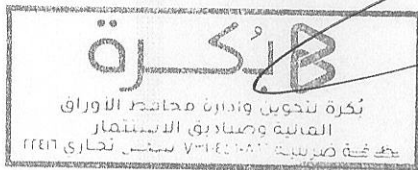 بُكرة
بُكرة لتكوين وإدارة محافظ الأوراق
المالية وصناديق الاستثمار
ضريبية سجل تجارى ٢٢٤١٦